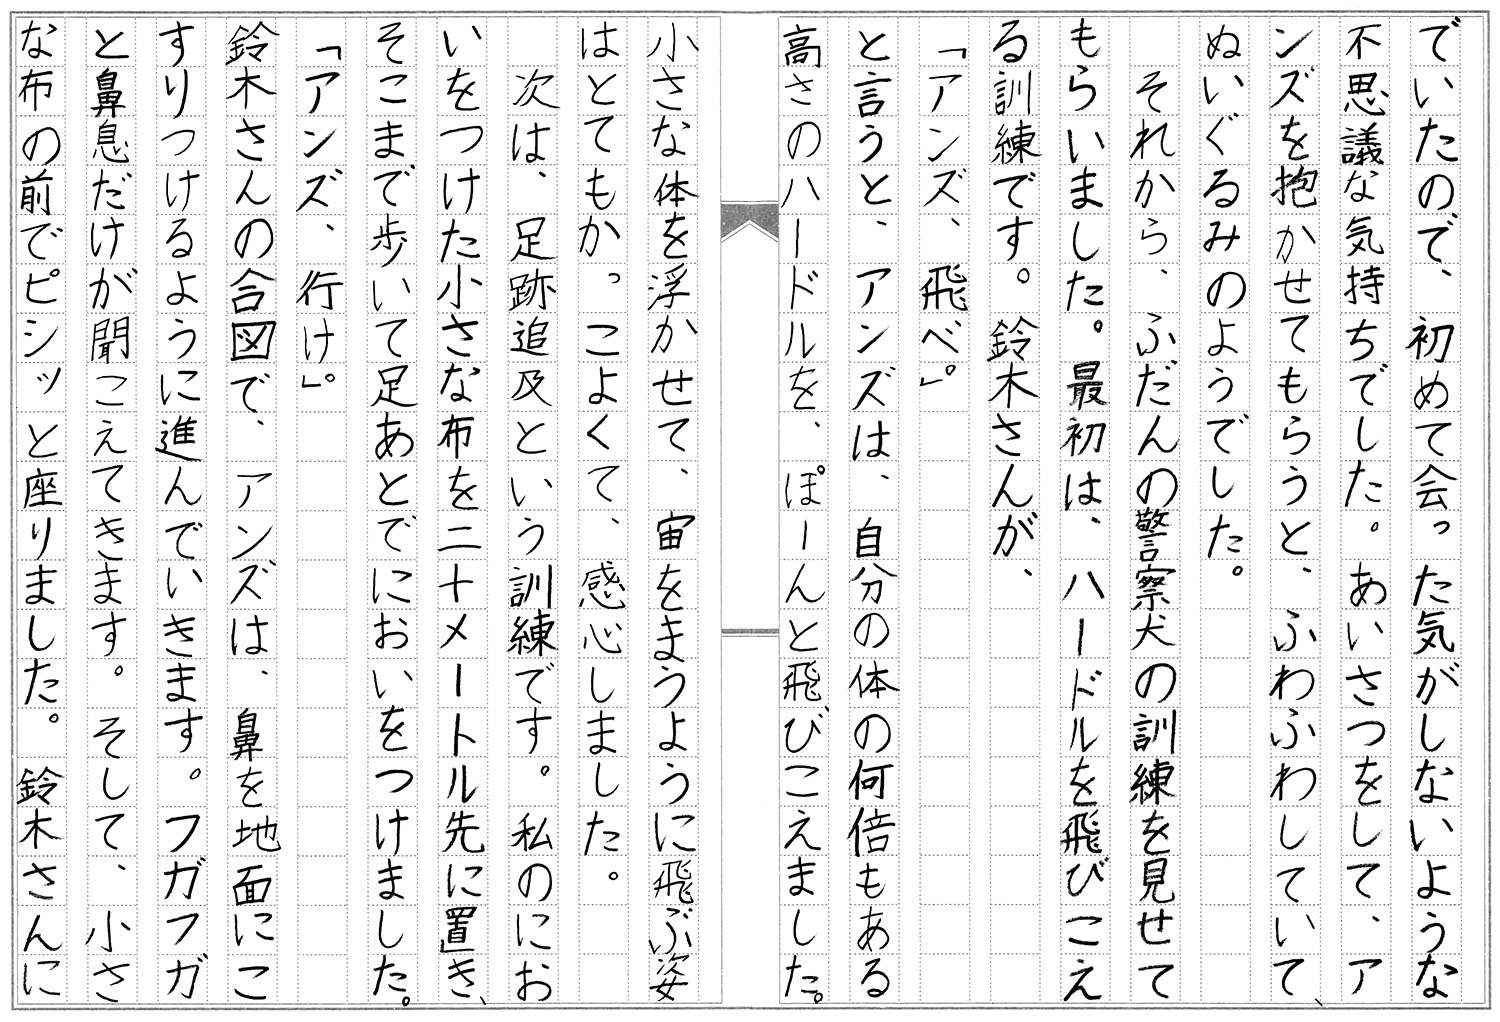 でいたので、初めて会った気がしないような
不思議な気持ちでした。あいさつをして、ア
ンズを抱かせてもらうと、ふわふわしていて、
ぬいぐるみのようでした。
それから、ふだんの警察犬の訓練を見せて
もらいました。最初は、ハードルを飛びこえ
る訓練です。鈴木さんが、
「アンズ、飛べ。」
と言うと、アンズは、自分の体の何倍もある
高さのハードルを、ぽーんと飛びこえました。
小さな体を浮かせて、宙をまうように飛ぶ姿
はとてもかっこよくて、感心しました。
次は、足跡追及という訓練です。私のにお
いをつけた小さな布を二十メートル先に置き、
そこまで歩いて足あとでにおいをつけました。
「アンズ、行け。」
鈴木さんの合図で、アンズは、鼻を地面にこ
すりつけるように進んでいきます。フガフガ
と鼻息だけが聞こえてきます。そして、小さ
な布の前でピシッと座りました。鈴木さんに